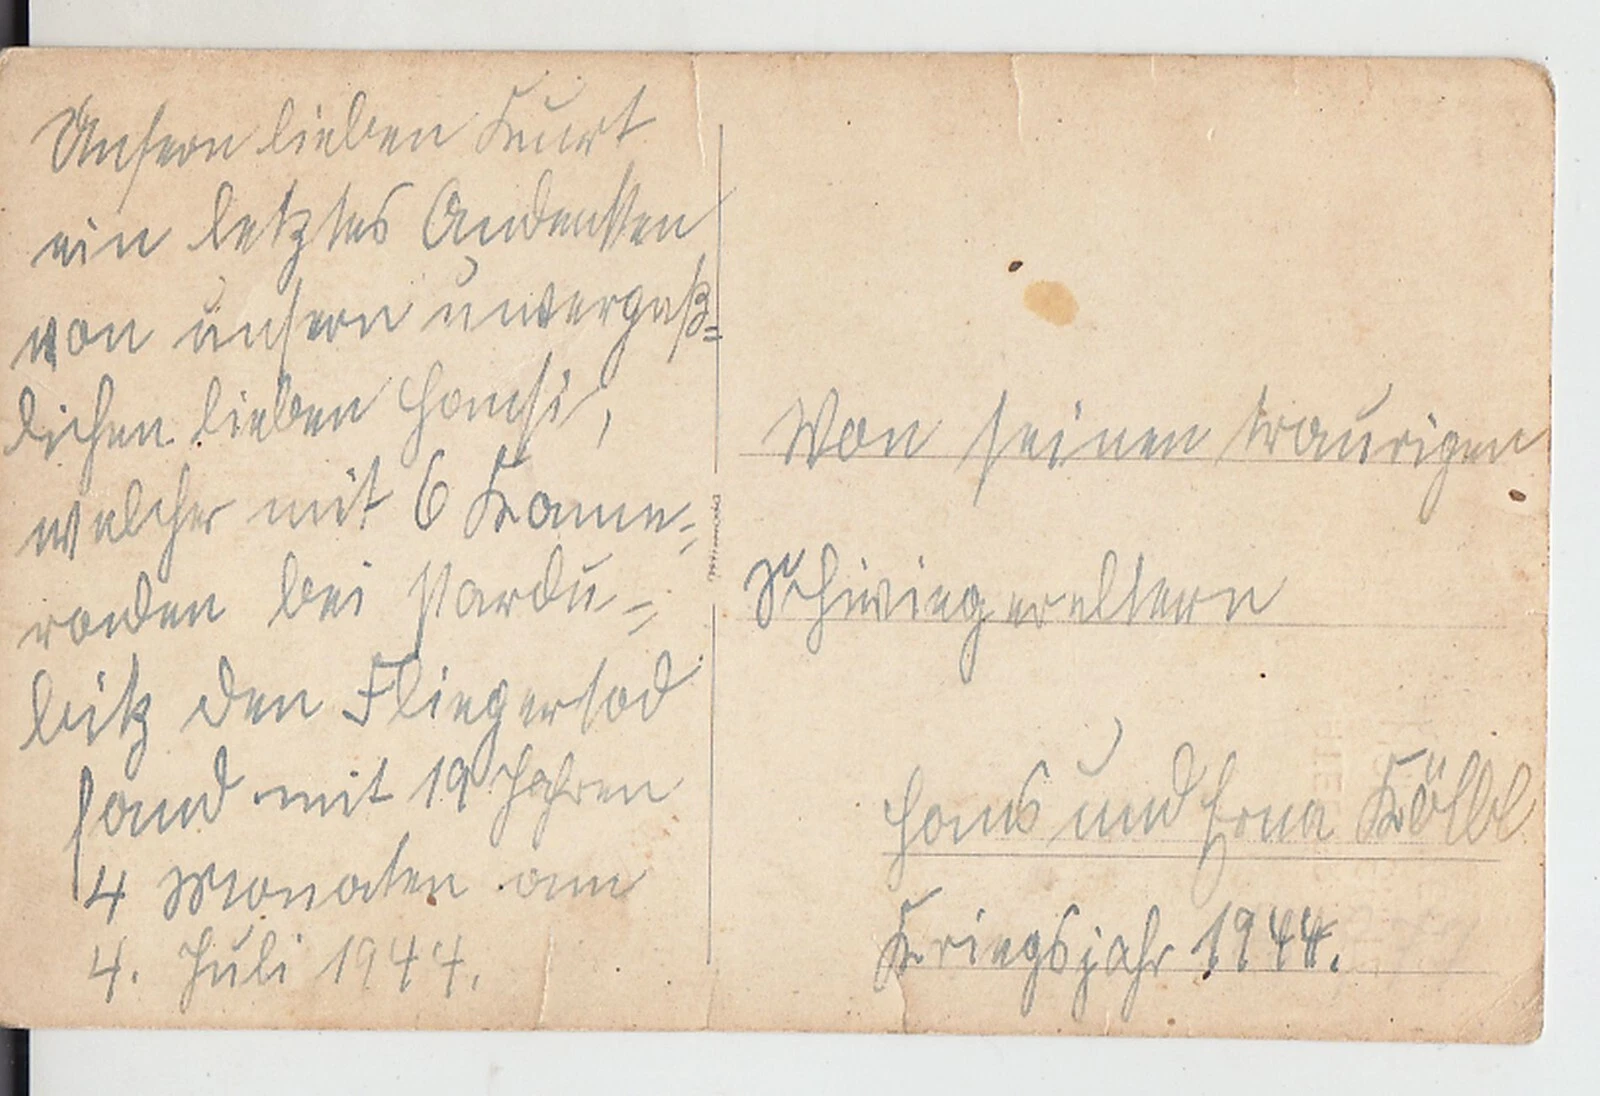 Unsern lieben Kurt
ein letztes Andenken
von unsern unvergeß=
lichen lieben Hansi,
welcher mit 6 Kame=
raden bei Pardu=
bitz den Fliegertod
fand mit 19 Jahren
4 Monaten am
4. Juli 1944.
Von seinen traurigen
Schwiegereltern
Hans und Erna Kölbl
Kriegsjahr 1944.